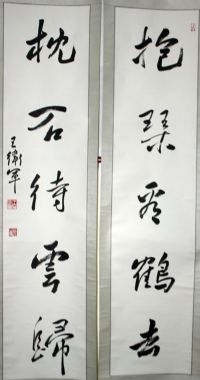 抱琴看鶴去
枕石待雲歸
王衛軍